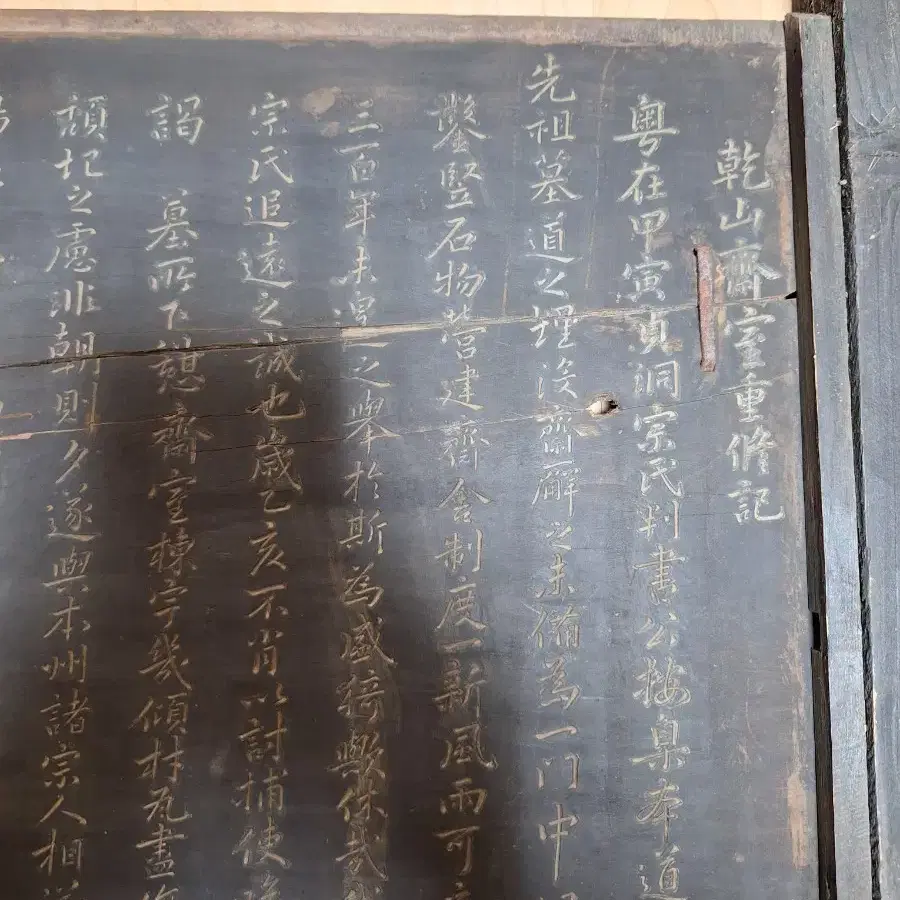 乾山齋室重脩記
粤在甲寅貞洞宗氏判書公按臬本道
先祖墓道之堙沒齋廨之未備為一門中
鑿竪石物營建齋舍制度一新風雨可
三百年未遑之擧於斯為盛猗歟休哉
宗氏追遠之誠也歲乙亥不肖以討捕使
謁 墓所下憇齋室棟宇幾傾材瓦盡
頹圮之慮非朝則夕遂與本州諸宗人相